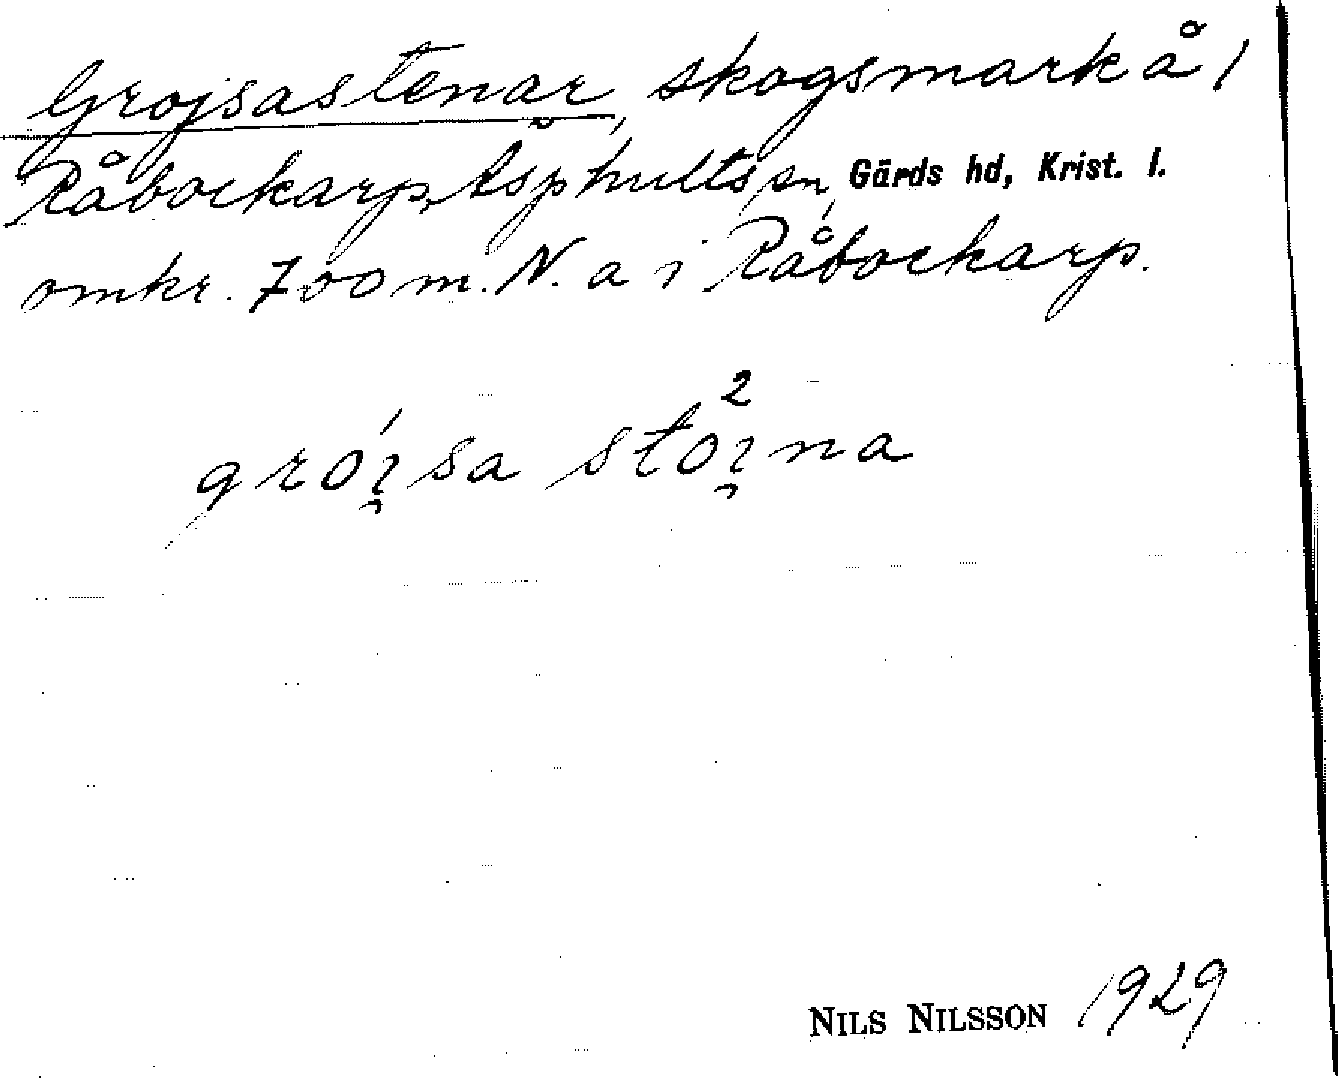 Grojsastenar, skogsmark å 1
Råbockarp, Åsphults sn, Gärds hd, Krist. l.
omkr. 700 m. N. a i Råbockarp.
2
gró̀i̯sa stoi̯na
NILS NILSSON 1929